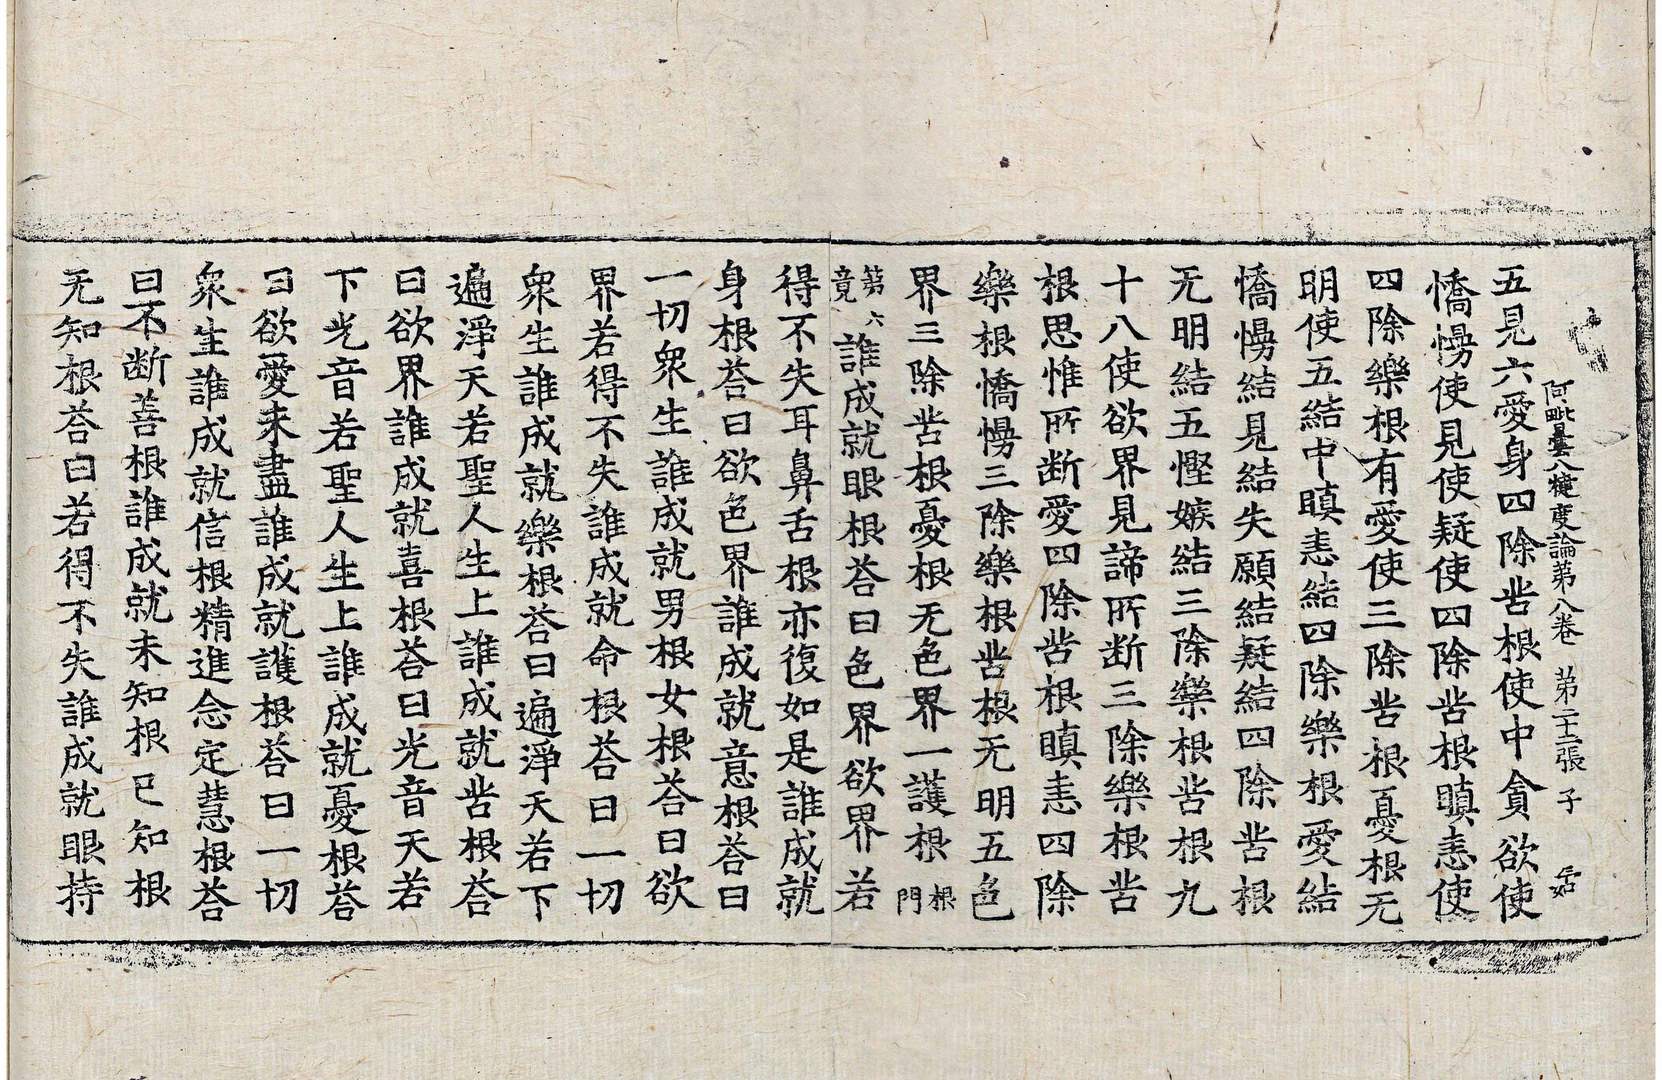 阿毗曇八犍度論第八卷 第二十二張 子
五見六愛身四除苦根使中貪欲使
憍慢使見使疑使四除苦根瞋恚使
四除樂根有愛使三除苦根憂根无
明使五結中瞋恚結四除樂根愛結
憍慢結見結失願結疑結四除苦根
无明結五慳嫉結三除樂根苦根九
十八使欲界見諦所斷三除樂根苦
根思惟所斷愛四除苦根瞋恚四除
樂根憍慢三除樂根苦根无明五色
界三除苦根憂根无色界一護根 根門
第六竟 誰成就眼根荅曰色界欲界若
得不失耳鼻舌根亦復如是誰成就
身根荅曰欲色界誰成就意根荅曰
一切衆生誰成就男根女根荅曰欲
界若得不失誰成就命根荅曰一切
衆生誰成就樂根荅曰遍淨天若下
遍淨天若聖人生上誰成就苦根荅
曰欲界誰成就喜根荅曰光音天若
下光音若聖人生上誰成就憂根荅
曰欲愛未盡誰成就護根荅曰一切
衆生誰成就信根精進念定慧根荅
曰不斷善根誰成就未知根已知根
无知根荅曰若得不失誰成就眼持